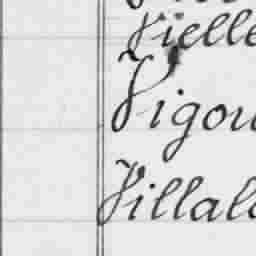 Vielle
Vigou
Villal